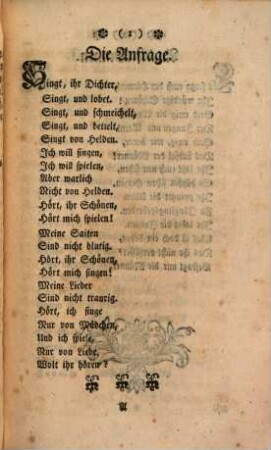 ( 1 )
Die Anfrage.
Singt, ihr Dichter,
Singt, und lobet.
Singt, und schmeichelt,
Singt, und bettelt,
Singt von Helden.
Ich will singen,
Ich will spielen,
Aber warlich
Nicht von Helden.
Hört, ihr Schönen,
Hört mich spielen!
Meine Saiten
Sind nicht blutig.
Hört, ihr Schönen,
Hört mich singen!
Meine Lieder
Sind nicht traurig.
Hört, ich singe
Nur von Mädchen,
Und ich spiele,
Nur von Liebe,
Wolt ihr hören?
A